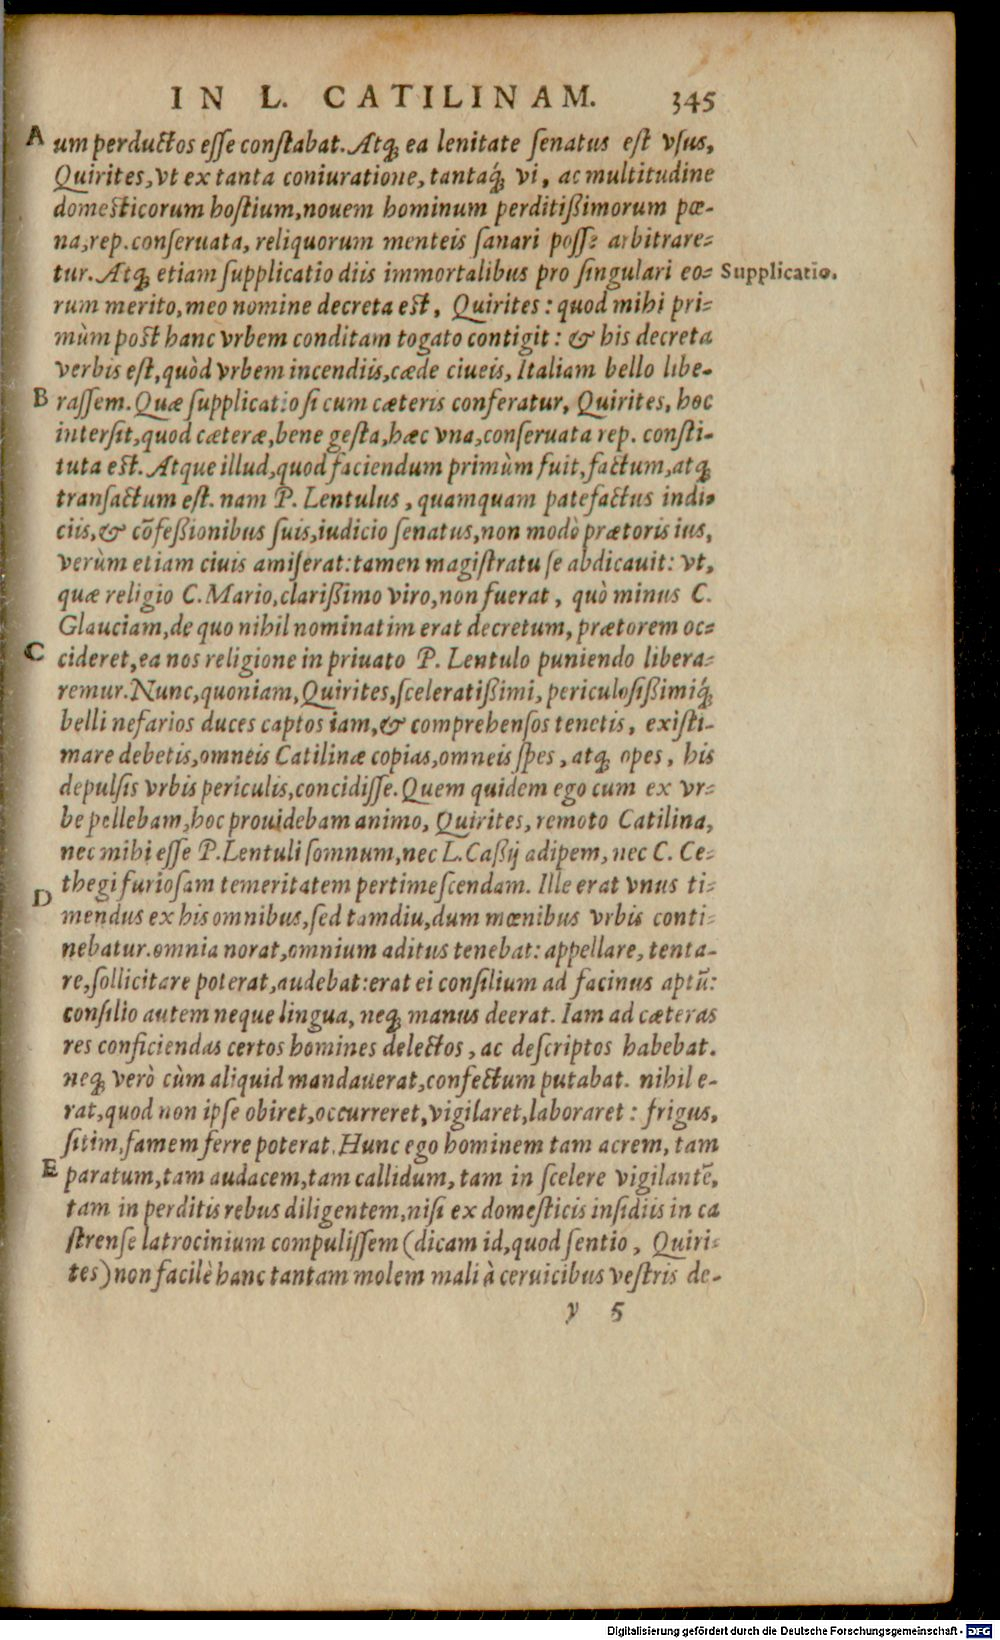 IN L. CATILINAM. 345
A um perductos esse constabat. Atq; ea lenitate senatus est vsus,
Quirites, vt ex tanta coniuratione, tantaq́; vi, ac multitudine
domesticorum hostium, nouem hominum perditißimorum pœ-
na, rep. conseruata, reliquorum menteis sanari posse arbitrare-
tur. Atq; etiam supplicatio diis immortalibus pro singulari eo- Supplicatio.
rum merito, meo nomine decreta est, Quirites: quod mihi pri-
mùm post hanc vrbem conditam togato contigit: & his decreta
verbis est, quòd vrbem incendiis, cæde ciueis, Italiam bello libe-
B rassem. Quæ supplicatio si cum cæteris conferatur, Quirites, hoc
intersit, quod cæteræ, bene gesta, hæc vna, conseruata rep. consti-
tuta est. Atque illud, quod faciendum primùm fuit, factum, atq;
transactum est. nam P. Lentulus, quamquam patefactus indi-
ciis, & cōfeßionibus suis, iudicio senatus, non modò prætoris ius,
verùm etiam ciuis amiserat: tamen magistratu se abdicauit: vt,
quæ religio C. Mario, clarißimo viro, non fuerat, quò minus C.
Glauciam, de quo nihil nominatim erat decretum, prætorem oc-
C cideret, ea nos religione in priuato P. Lentulo puniendo libera-
remur. Nunc, quoniam, Quirites, sceleratißimi, periculosißimiq́;
belli nefarios duces captos iam, & comprehensos tenetis, existi-
mare debetis, omneis Catilinæ copias, omneis spes, atq; opes, his
depulsis vrbis periculis, concidisse. Quem quidem ego cum ex vr-
be pellebam, hoc prouidebam animo, Quirites, remoto Catilina,
nec mihi esse P. Lentuli somnum, nec L. Caßij adipem, nec C. Ce-
thegi furiosam temeritatem pertimescendam. Ille erat vnus ti-
D mendus ex his omnibus, sed tamdiu, dum mœnibus vrbis conti-
nebatur. omnia norat, omnium aditus tenebat: appellare, tenta-
re, sollicitare poterat, audebat: erat ei consilium ad facinus aptū:
consilio autem neque lingua, neq; manus deerat. Iam ad cæteras
res conficiendas certos homines delectos, ac descriptos habebat.
neq; verò cùm aliquid mandauerat, confectum putabat. nihil e-
rat, quod non ipse obiret, occurreret, vigilaret, laboraret: frigus,
sitim, famem ferre poterat. Hunc ego hominem tam acrem, tam
E paratum, tam audacem, tam callidum, tam in scelere vigilantē,
tam in perditis rebus diligentem, nisi ex domesticis insidiis in ca
strense latrocinium compulissem (dicam id, quod sentio, Quiri-
tes) non facilè hanc tantam molem mali à ceruicibus vestris de-
y 5
Digitalisierung gefördert durch die Deutsche Forschungsgemeinschaft - DFG